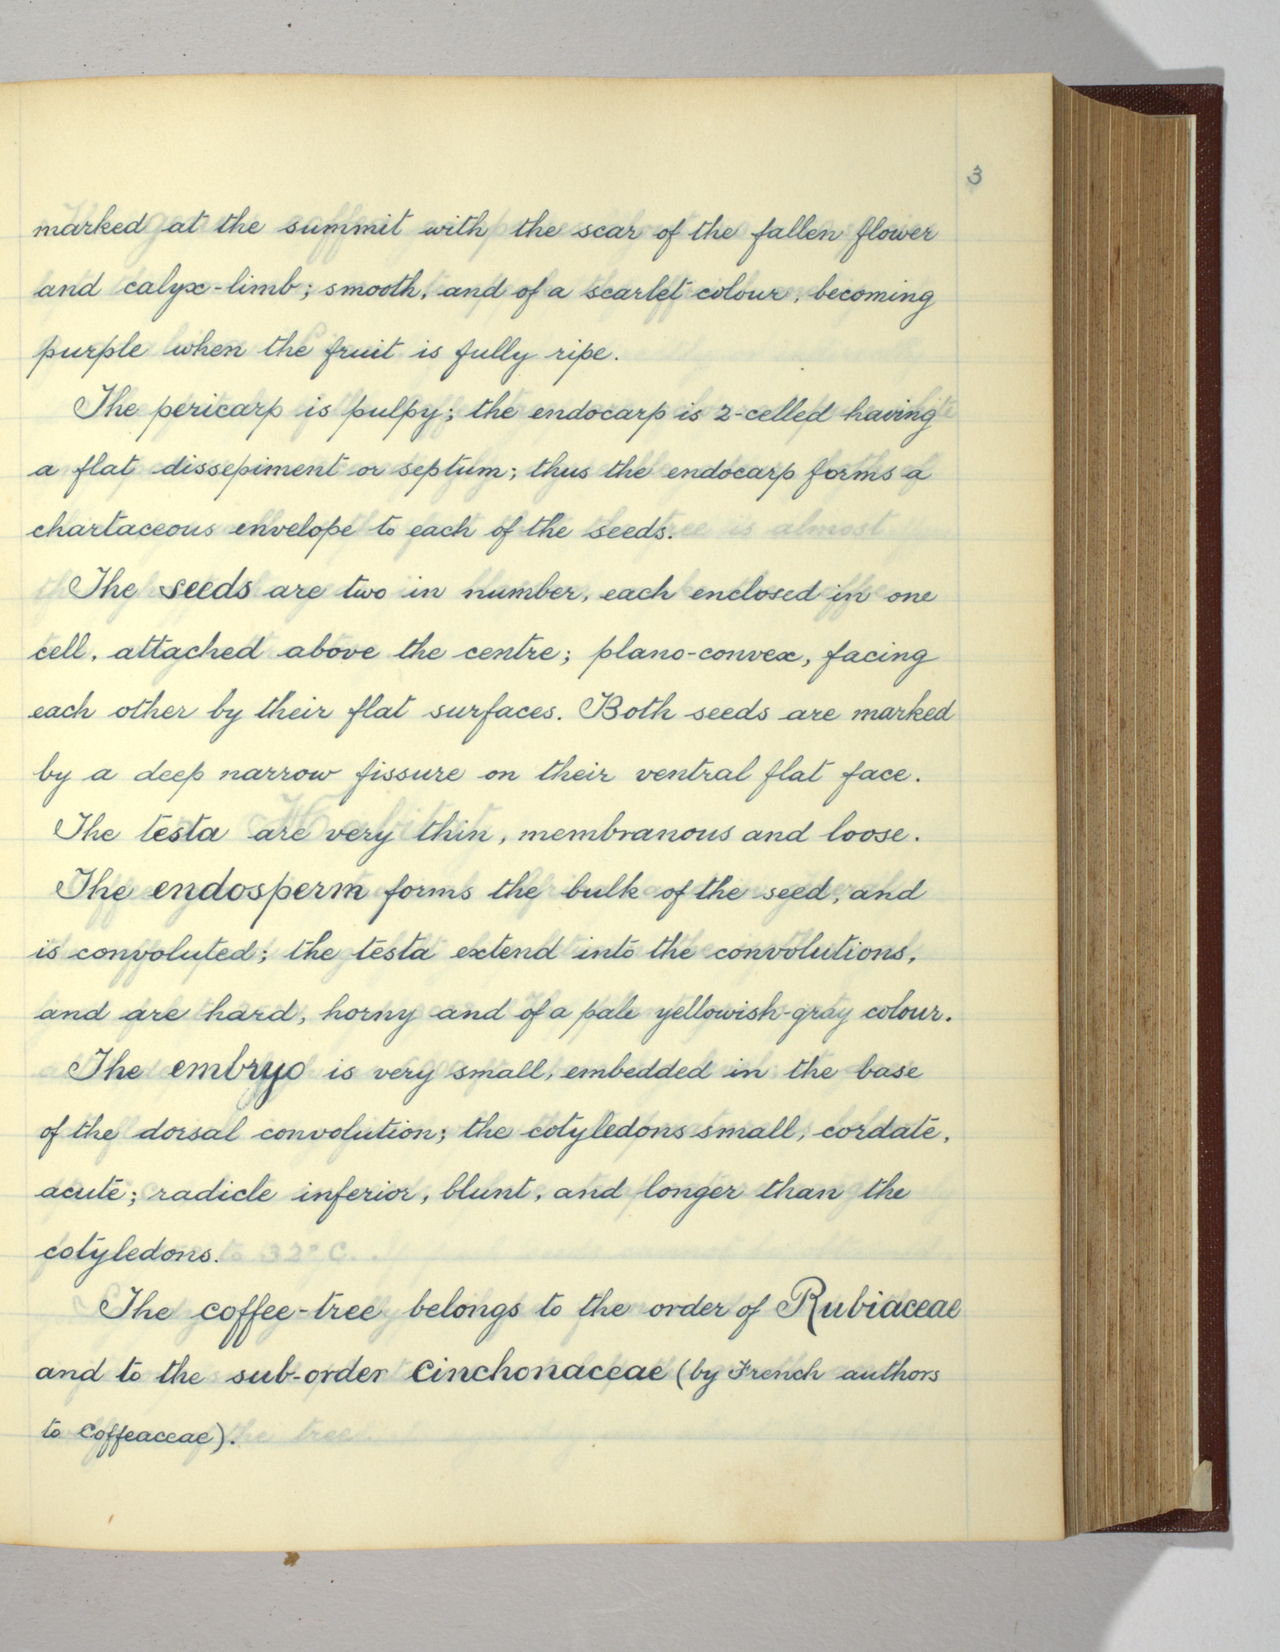 3
marked at the summit with the scar of the fallen flower
and calyx-limb; smooth, and of a scarlet colour, becoming
purple when the fruit is fully ripe.
The pericarp is pulpy; the endocarp is 2-celled having
a flat dissepiment or septum; thus the endocarp forms a
chartaceous envelope to each of the seeds.
The seeds are two in number, each enclosed in one
cell, attached above the centre; plano-convex, facing
each other by their flat surfaces. Both seeds are marked
by a deep narrow fissure on their ventral flat face.
The testa are very thin, membranous and loose.
The endosperm forms the bulk of the seed, and
is convoluted; the testa extend into the convolutions,
and are hard, horny and of a pale yellowish-gray colour.
The embryo is very small, embedded in the base
of the dorsal convolution; the cotyledons small, cordate,
acute; radicle inferior, blunt, and longer than the
cotyledons.
The coffee-tree belongs to the order of Rubiaceae
and to the sub-order Cinchonaceae (by French authors
to Coffeaceae).